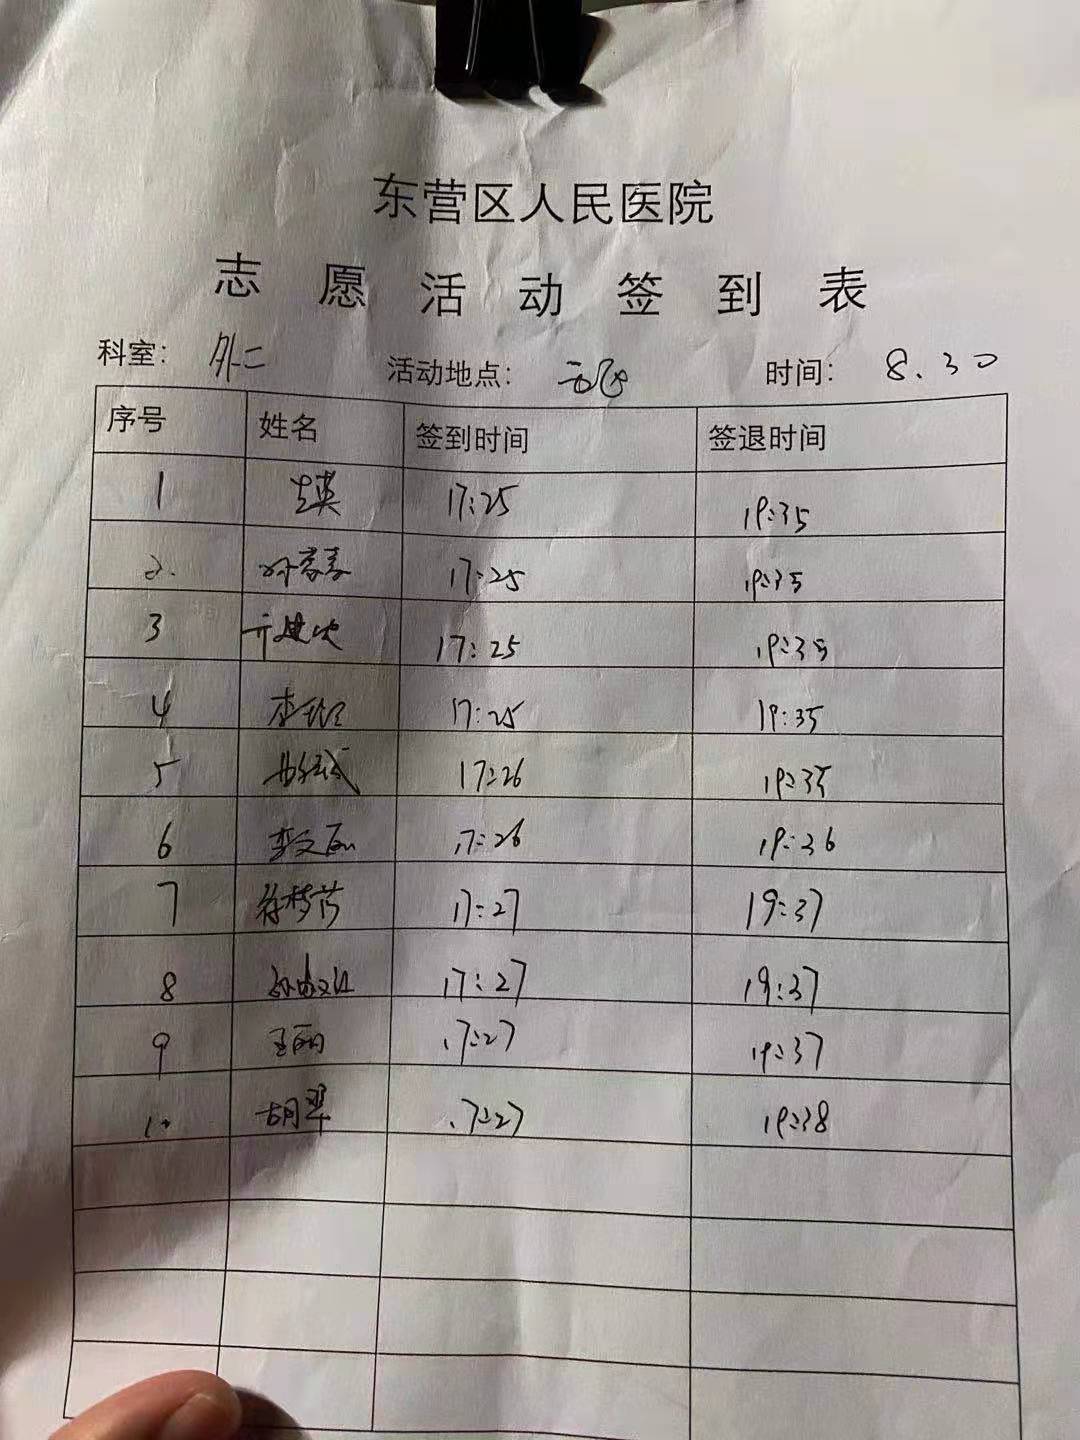 东营区人民医院
志愿活动签到表
科室： 外二 活动地点： 时间： 8.30
序号 姓名 签到时间 签退时间
1 17:25 19:35
2. 17:25 19:35
3 17:25 19:35
4 17:25 19:35
5 17:26 19:35
6 李文丽 17:26 19:36
7 徐梦芮 17:27 19:37
8 17:27 19:37
9 王丽 17:27 19:37
10 胡翠 17:27 19:38